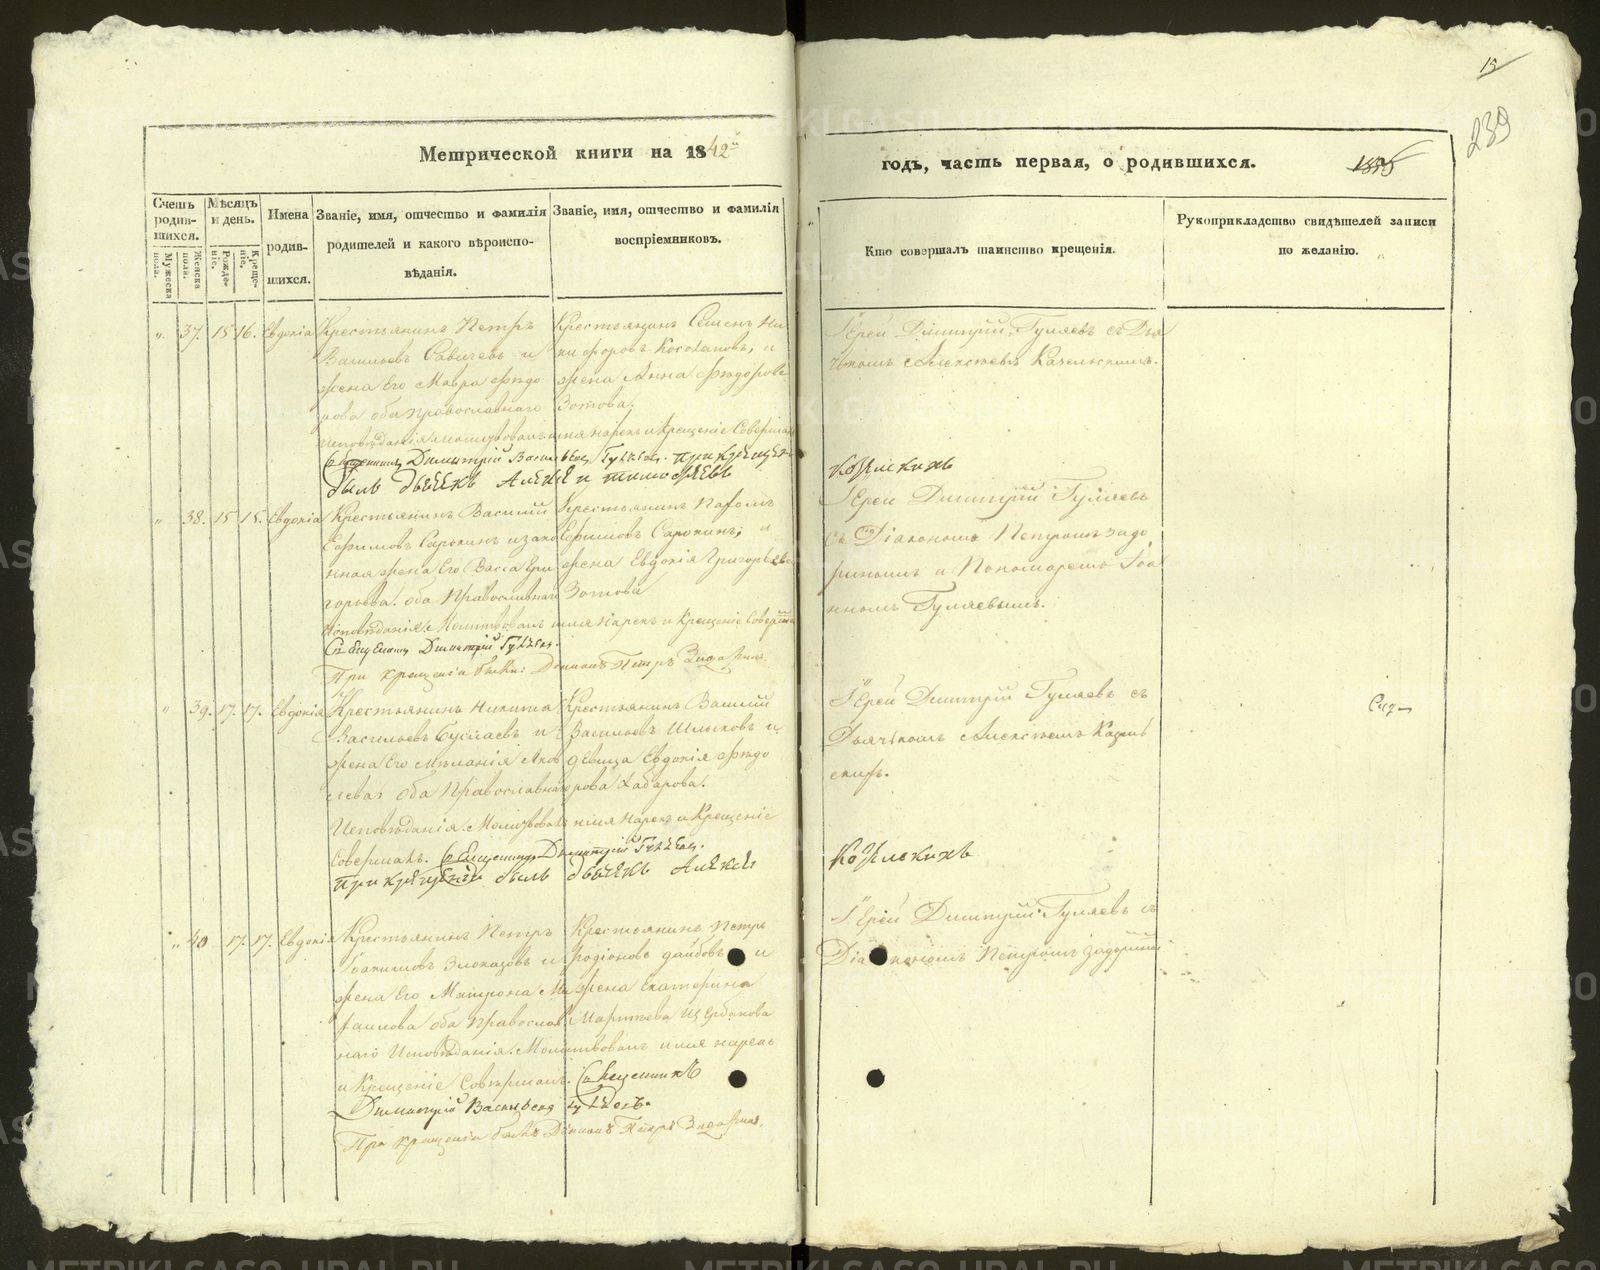 15
239
Метрической книги на 1842й
годъ, часть первая, о родившихся.
1845
Счетъ родившихся.
Мужеска пола.
Женска пола.
Мѣсяцъ и день.
Рожденіе.
Крещеніе.
Имена родившихся.
Званіе, имя, отчество и фамилія
родителей и какого вѣроиспо-
вѣданія.
Званіе, имя, отчество и фамилія
воспріемниковъ.
Кто совершалъ таинство крещенія.
Рукоприкладство свидѣтелей записи
по желанію.
„ 37. 15 16. Евдокія
Крестьянинъ Петръ
Васильевъ Савичевъ и
жена Его Мавра Ѳедо
рова оба православнаго
исповѣданія. Молитвовалъ имя нарекъ и крещеніе Совершалъ
Священникъ Димитрій Васильевъ Гуляевъ. при крещеніи
былъ дьячекъ Алексѣй
Крестьянинъ Семенъ Ни
кифоровъ Косолаповъ, и
жена Анна Ѳедорова
Зотова.
Іерей Димитрій Гуляевъ съ Дья
чкомъ Алексѣемъ Козельскимъ.
Козелскихъ
„ 38. 15 15. Евдокія
Крестьянинъ Василий
Ефимовъ Сарокинъ и зако
нная жена Его Васса Гри
горьева. оба Православнаго
Исповѣданія. Молитвовалъ имя Нарекъ и Крещеніе Совершалъ
Священникъ Димитрій Гуляевъ.
При крещеніи былъ: Діаконъ Петръ Задоринъ
Крестьянинъ Пафомъ
Ефимовъ Сарокинъ, и
жена Евдокія Григорьева
Зотова
Іерей Димитрій Гуляевъ
съ Діакономъ Петромъ Задо
ринымъ и Пономаремъ Іоа
нномъ Гуляевымъ.
„ 39. 17. 17. Евдокія
Крестьянинъ Никита
Васильевъ Бусыаевъ и
жена Его Меланія Яков
лева оба Православнаго
Исповѣданія. Молитвовалъ имя Нарекъ и Крещеніе
Совершалъ. Священникъ Димитрій Гуляевъ.
при крещеніи былъ дьячекъ Алексѣй
Крестьянинъ Василий
Васильевъ Шлыковъ и
дѣвица Евдокія Ѳедо
рова Хабарова.
Іерей Димитрій Гуляевъ съ
Дьячкомъ Алексѣемъ Козель
скимъ.
Козелскихъ
„ 40 17. 17. Евдокія
Крестьянинъ Петръ
Іоакимовъ Злоказовъ и
жена Его Матрона Ми
хаилова оба Православ
наго Исповѣданія. Молитвовалъ имя нарекъ
и Крещеніе Совершалъ. Священникъ
Димитрій Васильевъ Гуляевъ.
При крещеніи былъ Діаконъ Петръ Задоринъ.
Крестьянинъ Петръ
Родіоновъ и
жена Екатерина
Щербакова
Іерей Димитрій Гуляевъ съ
Діакономъ Петромъ Задоринымъ